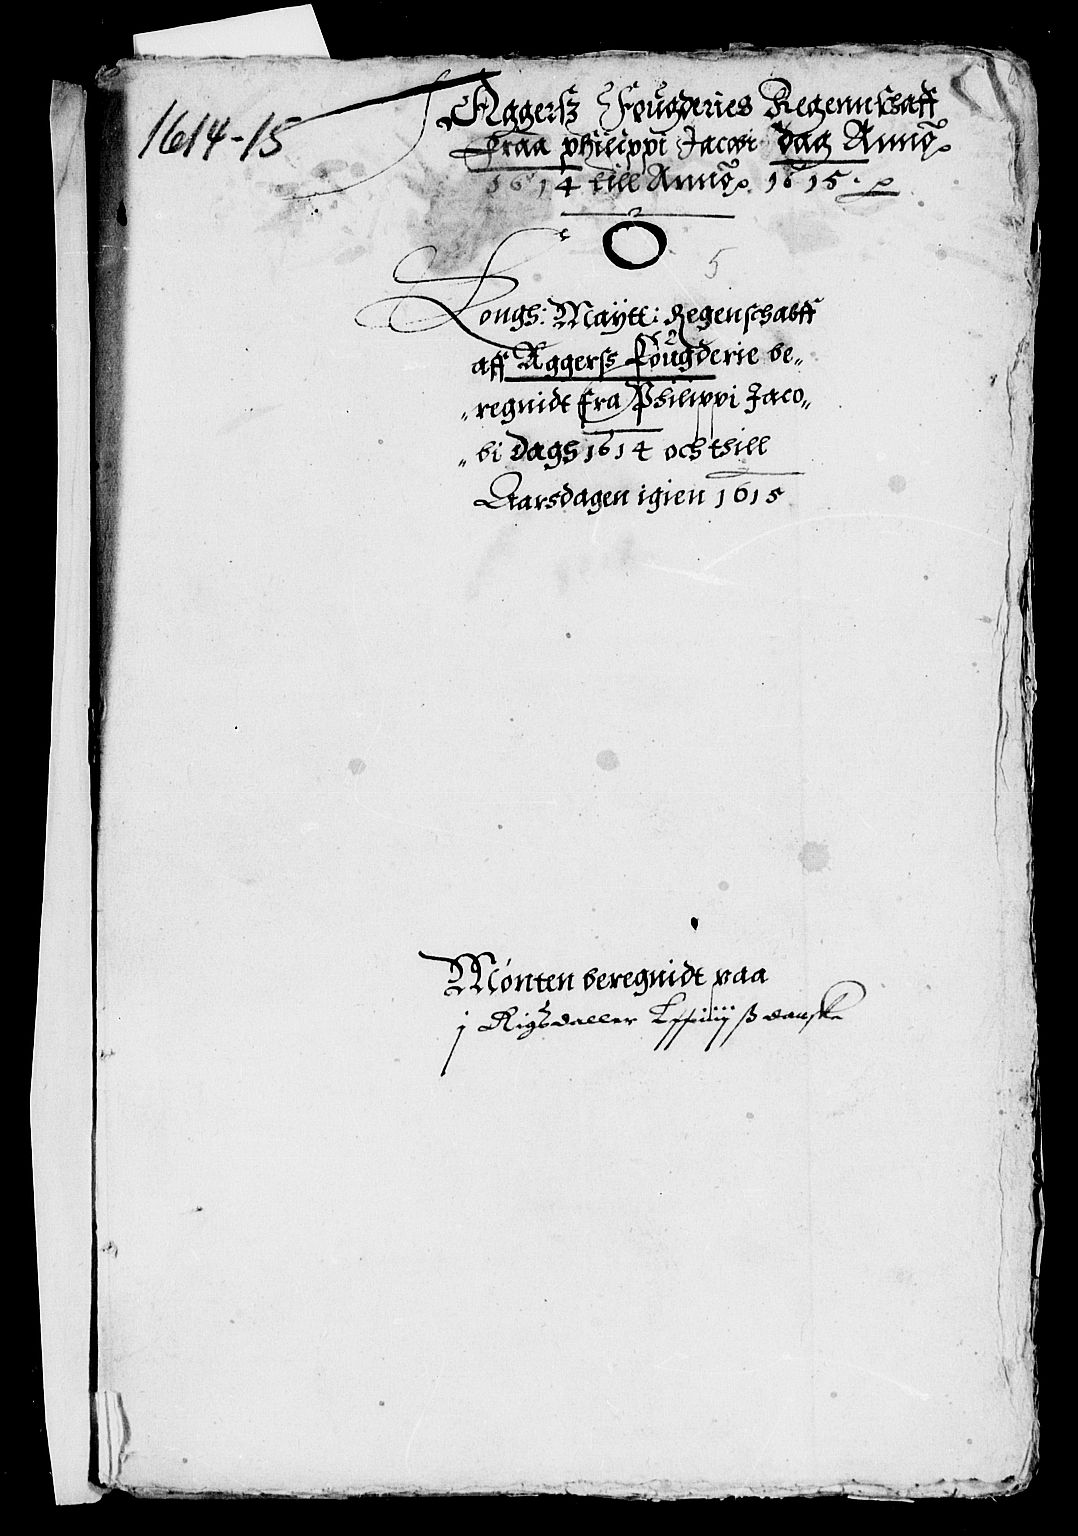 1614-15
Aggersz Fougderies Regennschaff
fraa philippi Jacobi dag Anno
1614 till Anno 1615.
5
Kongs: Maÿtt: Regenschabff
aff Aggerss fougderie be„
„regnidt fra Philippi Jaco„
„bi dags 1614 och thill
Aarsdagen igien 1615
Mónten beregnidt paa
j Rigsdaller ß danske